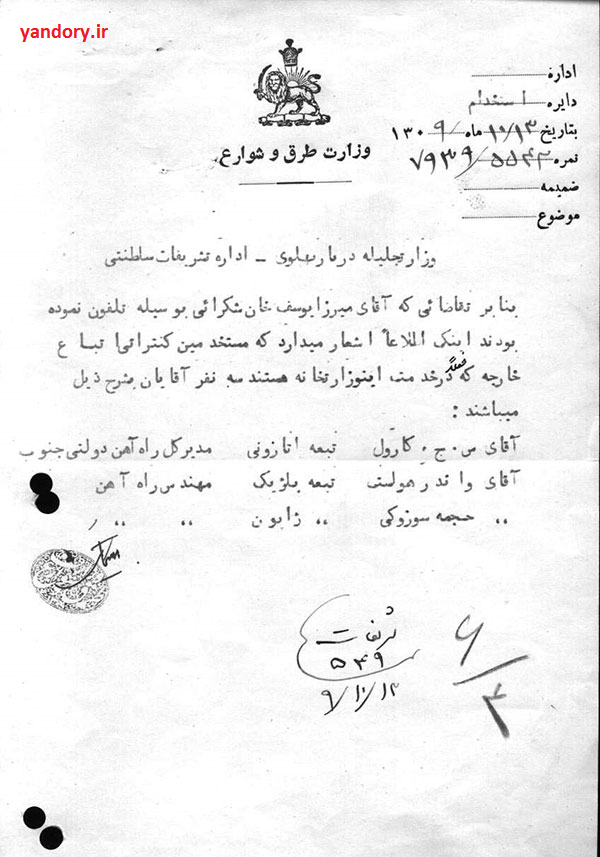 yandory.ir
وزارت طرق و شوارع
اداره
دایره استخدام
بتاریخ ۱۰/۱۳ ماه ۱۳۰۹
نمره ۵۵۴۴/۷۹۳۹
ضمیمه
موضوع
وزارتجلیله دربارپهلوی ــ اداره تشریفات سلطنتی
بنابر تقاضائی که آقای میرزایوسف خان شکرائی بوسیله تلفون نموده
بودند اینک اطلاعاً اشعار میدارد که مستخدمین کنتراتی اتباع
خارجه که فعلاً درخدمت اینوزارتخانه هستند سه نفر آقایان بشرح ذیل
میباشند :
آقای س . ج . کارول تبعه اتازونی مدیرکل راه آهن دولتی جنوب
آقای واندرهولست تبعه بلژیک مهندس راه آهن
,, حجمه سوزوکی ,, ژاپون ,, ,, ,,
تشریفات
۵۴۹
۹/۱۰/۱۴